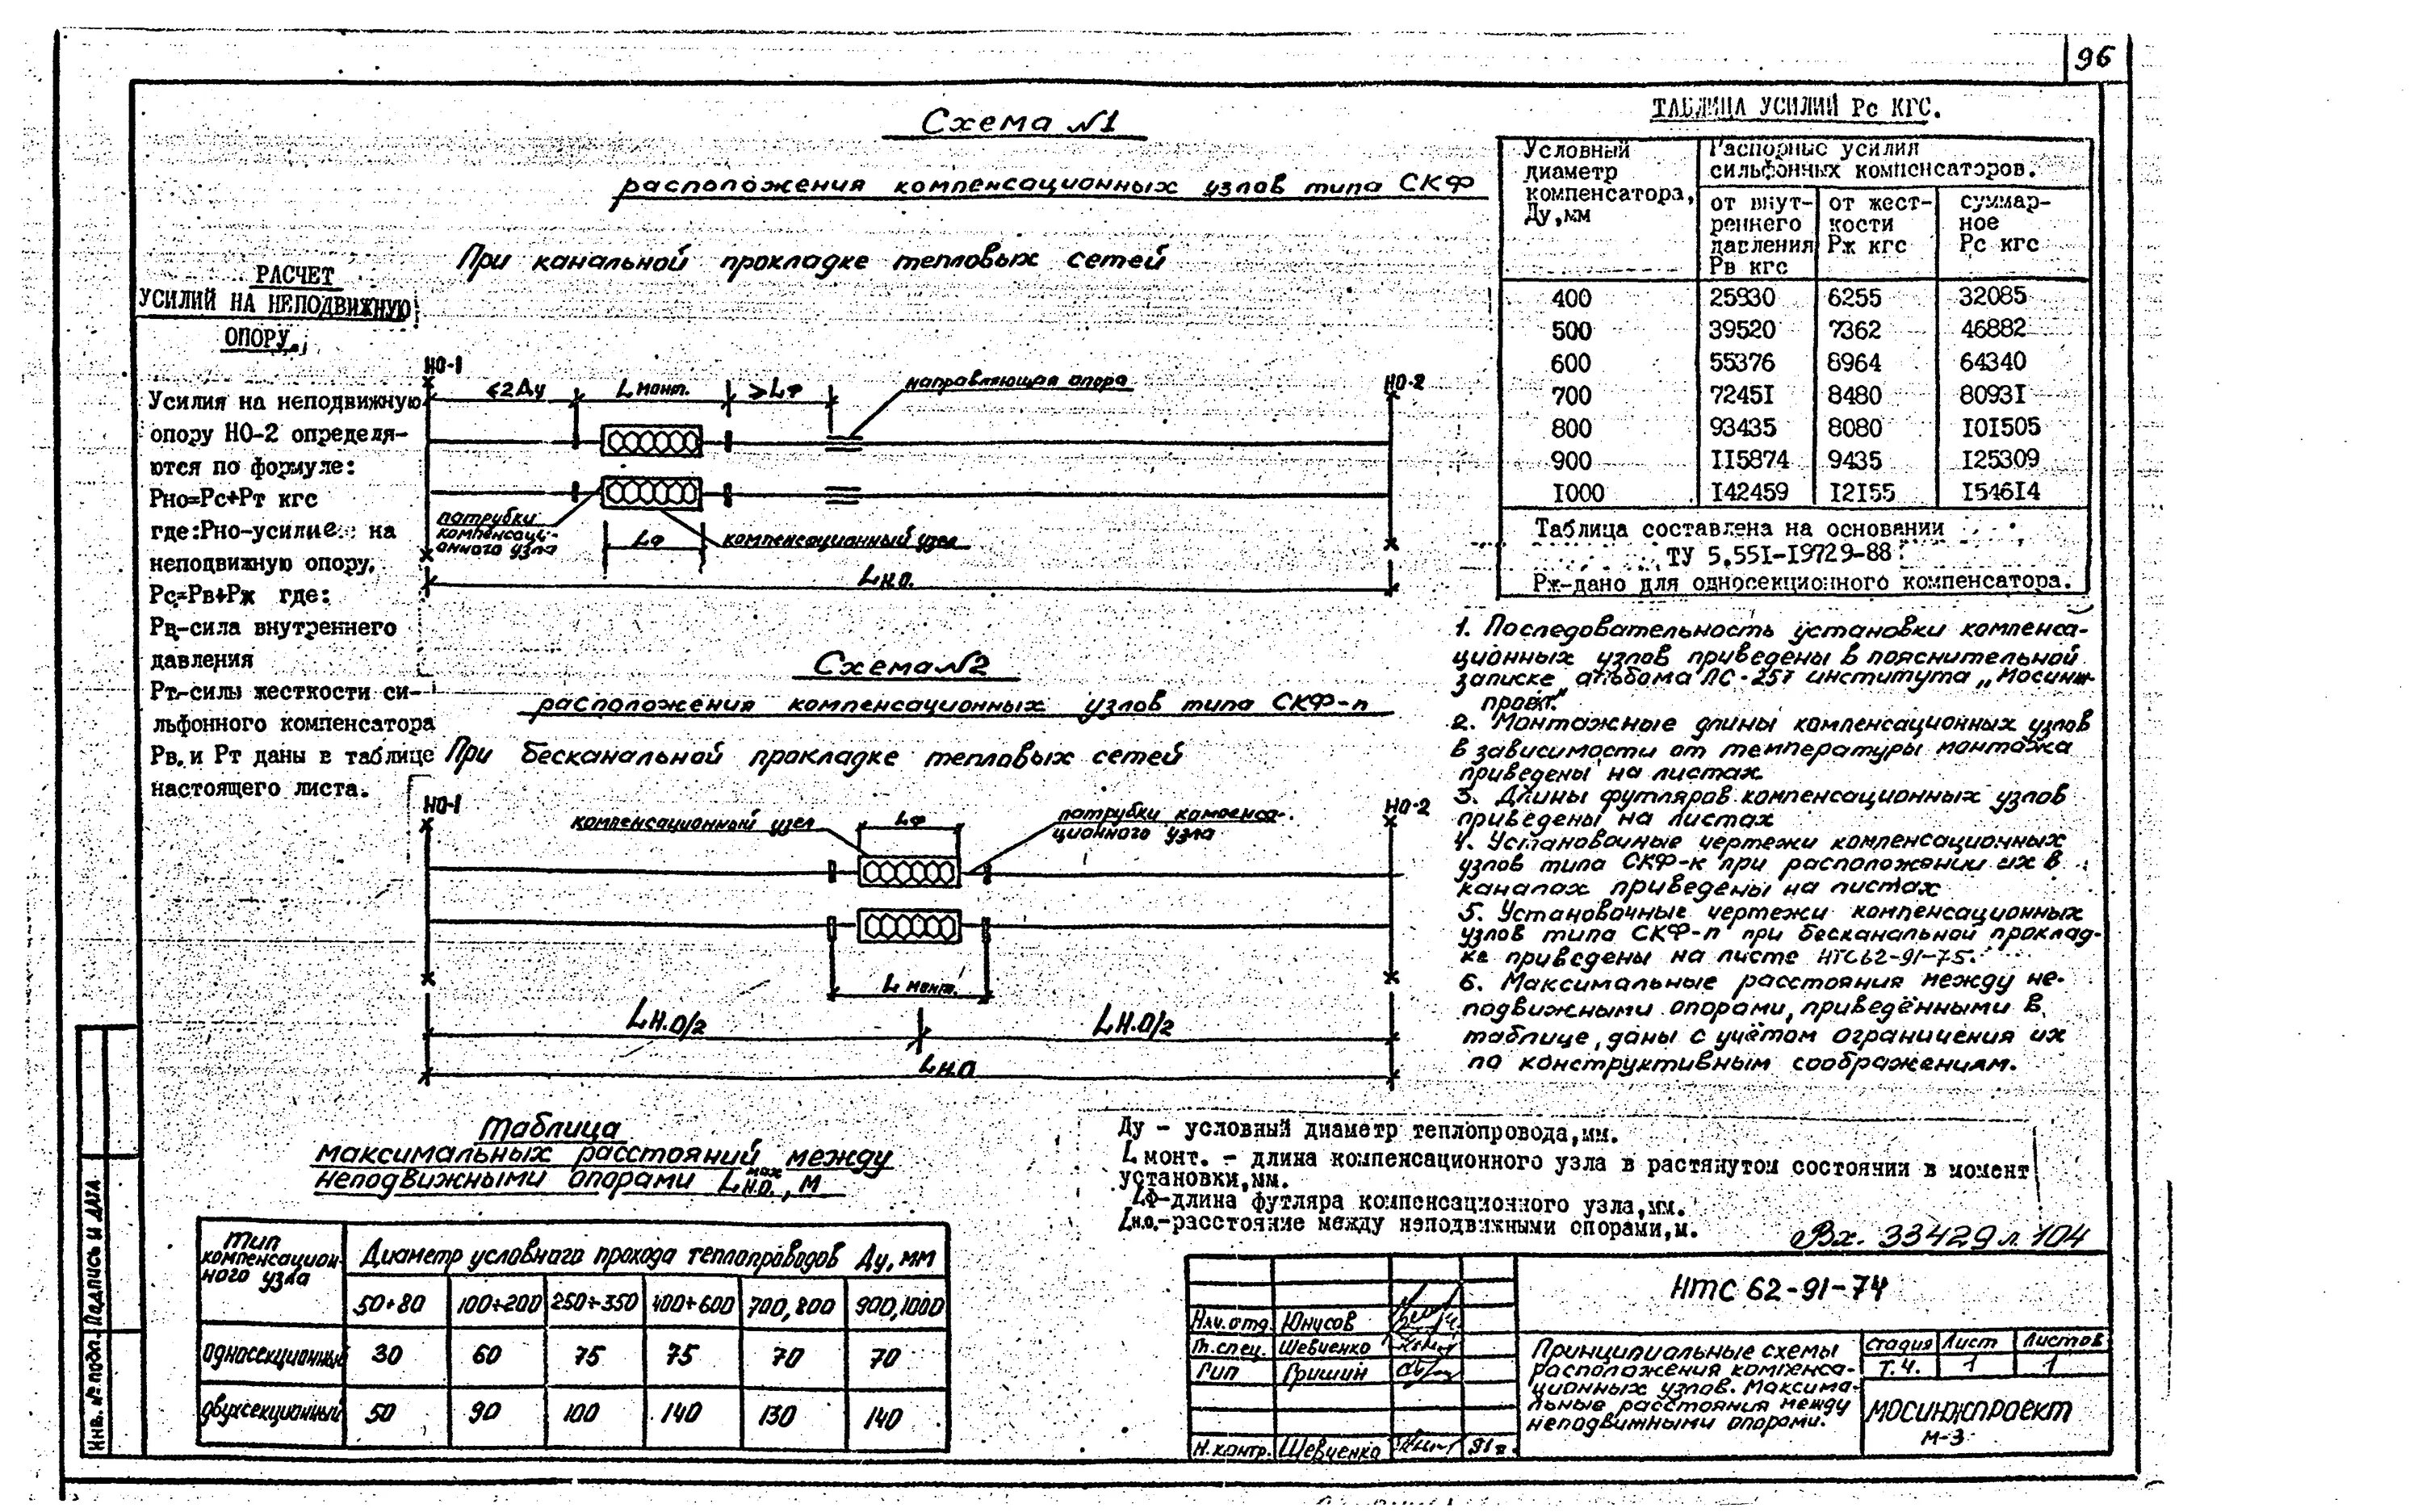 96
Схема №1
расположения компенсационных узлов типа СКФ
При канальной прокладке тепловых сетей
РАСЧЕТ
УСИЛИЙ НА НЕПОДВИЖНУЮ
ОПОРУ.
Усилия на неподвижную
опору НО-2 определя-
ются по формуле:
Рно=Рс+Рт кгс
где:Рно-усилие на
неподвижную опору.
Рс=Рв+Рж где:
Рв-сила внутреннего
давления
Рт-силы жесткости си-
льфонного компенсатора
Рв.и Рт даны в таблице
настоящего листа.
НО-1
<2Ду
L монт.
≥Lф
направляющая опора
НО-2
патрубки
компенсаци-
онного узла
Lф
компенсационный узел
Lн.о.
Схема №2
расположения компенсационных узлов типа СКФ-п
При бесканальной прокладке тепловых сетей
НО-1
компенсационный узел
Lф
патрубки компенса-
ционного узла
НО-2
L монт.
Lн.о/2
Lн.о/2
Lн.о
ТАБЛИЦА УСИЛИЙ Рс КГС.
Условный диаметр компенсатора, Ду,мм
Распорные усилия сильфонных компенсаторов.
от внут-реннего давления Рв кгс
от жест-кости Рж кгс
суммар-ное Рс кгс
400 25930 6255 32085
500 39520 7362 46882
600 55376 8964 64340
700 7245I 8480 8093I
800 93435 8080 I0I505
900 II5874 9435 I25309
I000 I42459 I2I55 I546I4
Таблица составлена на основании
ТУ 5.55I-I9729-88
Рж-дано для односекционного компенсатора.
1. Последовательность установки компенса-
ционных узлов приведены в пояснительной
записке альбома ПС-257 института „Мосинж-
проект"
2. Монтажные длины компенсационных узлов
в зависимости от температуры монтажа
приведены на листах
3. Длины футляров компенсационных узлов
приведены на листах
4. Установочные чертежи компенсационных
узлов типа СКФ-к при расположении их в
каналах приведены на листах
5. Установочные чертежи компенсационных
узлов типа СКФ-п при бесканальной проклад-
ке приведены на листе НТС62-91-75.
6. Максимальные расстояния между не-
подвижными опорами, приведёнными в
таблице, даны с учётом ограничения их
по конструктивным соображениям.
Таблица
максимальных расстояний между
неподвижными опорами Lн.о.max, м
Тип компенсацион-ного узла
Диаметр условного прохода теплопроводов Ду, мм
50÷80 100÷200 250÷350 400÷600 700,800 900,1000
односекционный 30 60 75 75 70 70
двухсекционный 50 90 100 140 130 140
Ду - условный диаметр теплопровода,мм.
L монт. - длина компенсационного узла в растянутом состоянии в момент
установки,мм.
Lф-длина футляра компенсационного узла,мм.
Lн.о.-расстояние между неподвижными опорами,м.
Вх. 33429 л 104
НТС 62-91-74
Нач. отд. Юнусов
Гл. спец. Шевченко
Гип Гришин
Н. контр. Шевченко 91г.
Принципиальные схемы
расположения компенса-
ционных узлов. Максима-
льные расстояния между
неподвижными опорами.
стадия Лист Листов
Т.Ч. 1 1
МОСИНЖПРОЕКТ
М-3
Инв. № подл. Подпись и дата